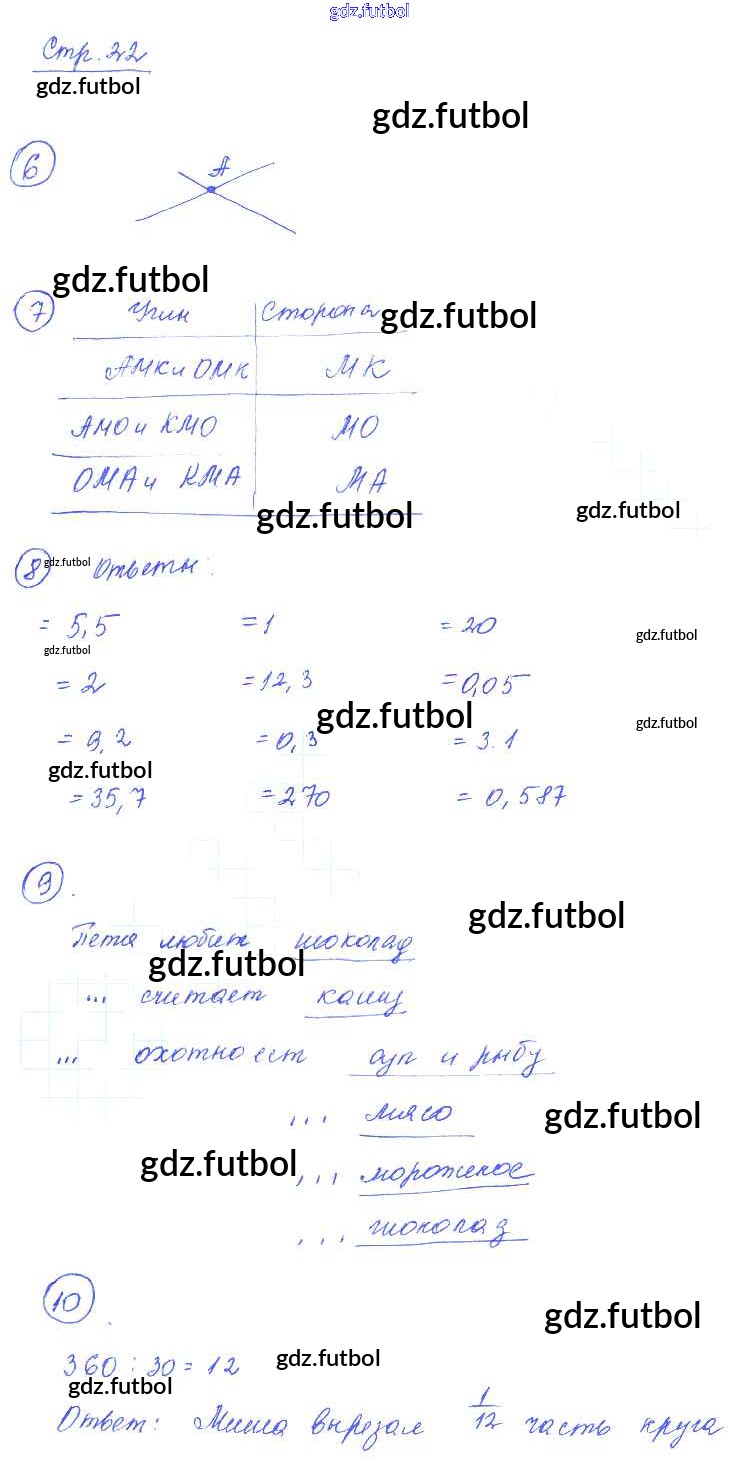 gdz.futbol
Стр. 22
gdz.futbol
gdz.futbol
6
А
gdz.futbol
7 Угли Сторона
gdz.futbol
АМК и ОМК МК
АМО и КМО МО
ОМА и КМА МА
gdz.futbol gdz.futbol
8 gdz.futbol Ответы:
= 5,5 = 1 = 20
gdz.futbol gdz.futbol
= 2 = 12,3 = 0,05
gdz.futbol gdz.futbol
= 9,2 = 0,3 = 3.1
gdz.futbol
= 35,7 = 270 = 0,587
9.
gdz.futbol
Петя любит шоколад
gdz.futbol
... считает кашу
... охотно ест суп и рыбу
... мясо
gdz.futbol
gdz.futbol
... мороженое
... шоколад
10.
gdz.futbol
360 : 30 = 12
gdz.futbol
gdz.futbol
Ответ: Миша вырезал 1/12 часть круга